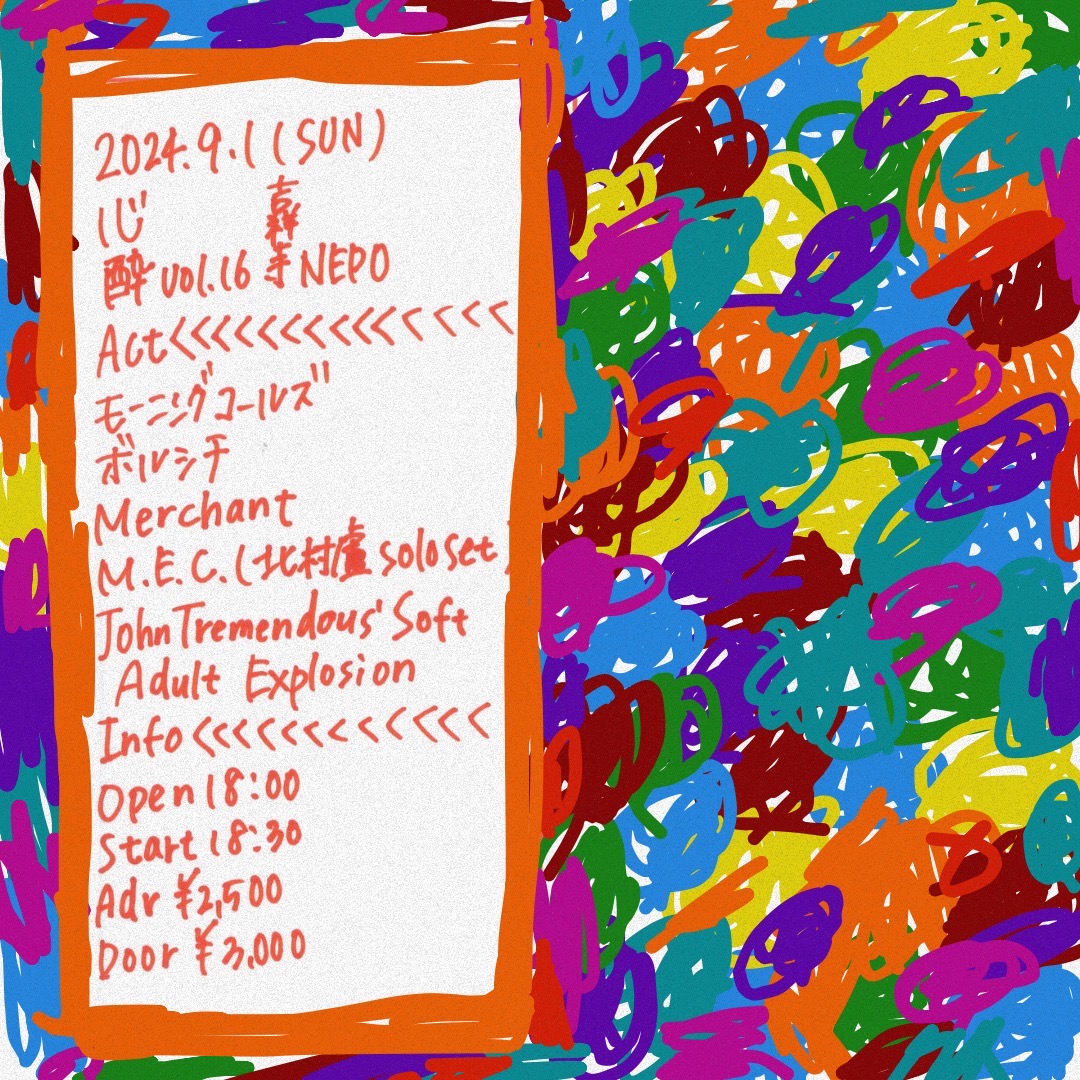 2024.9.1(SUN)
いじ
酔 vol.16 NEPO
Act<<<<<<<<<<<<<<<
モーニングコールズ
ボルシチ
Merchant
M.E.C.(北村 solo set)
John Tremendous' Soft
Adult Explosion
Info<<<<<<<<<<<<
Open 18:00
Start 18:30
Adr ¥2,500
Door ¥3,000